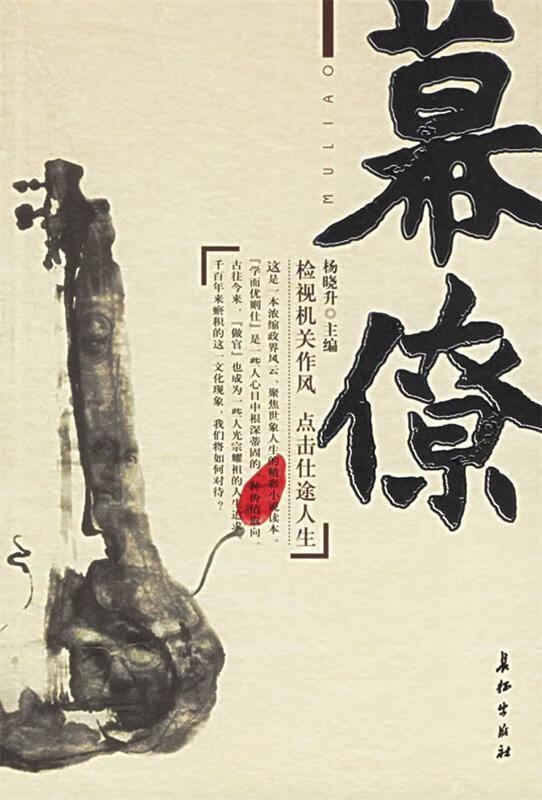 幕僚
MULIAO
杨晓升◎主编
检视机关作风 点击仕途人生
这是一本浓缩政界风云、聚焦世象人生的精彩小说读本。
『学而优则仕』是一些人心目中根深蒂固的一种价值取向。
古往今来，『做官』也成为一些人光宗耀祖的人生追求。
千百年来瘀积的这一文化现象，我们将如何对待？
长征出版社